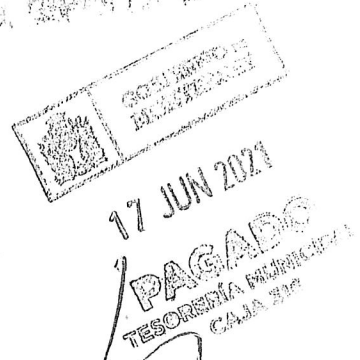 GOBIERNO DE
17 JUN 2021
PAGADO
TESORERÍA MUNICIPAL
CAJA